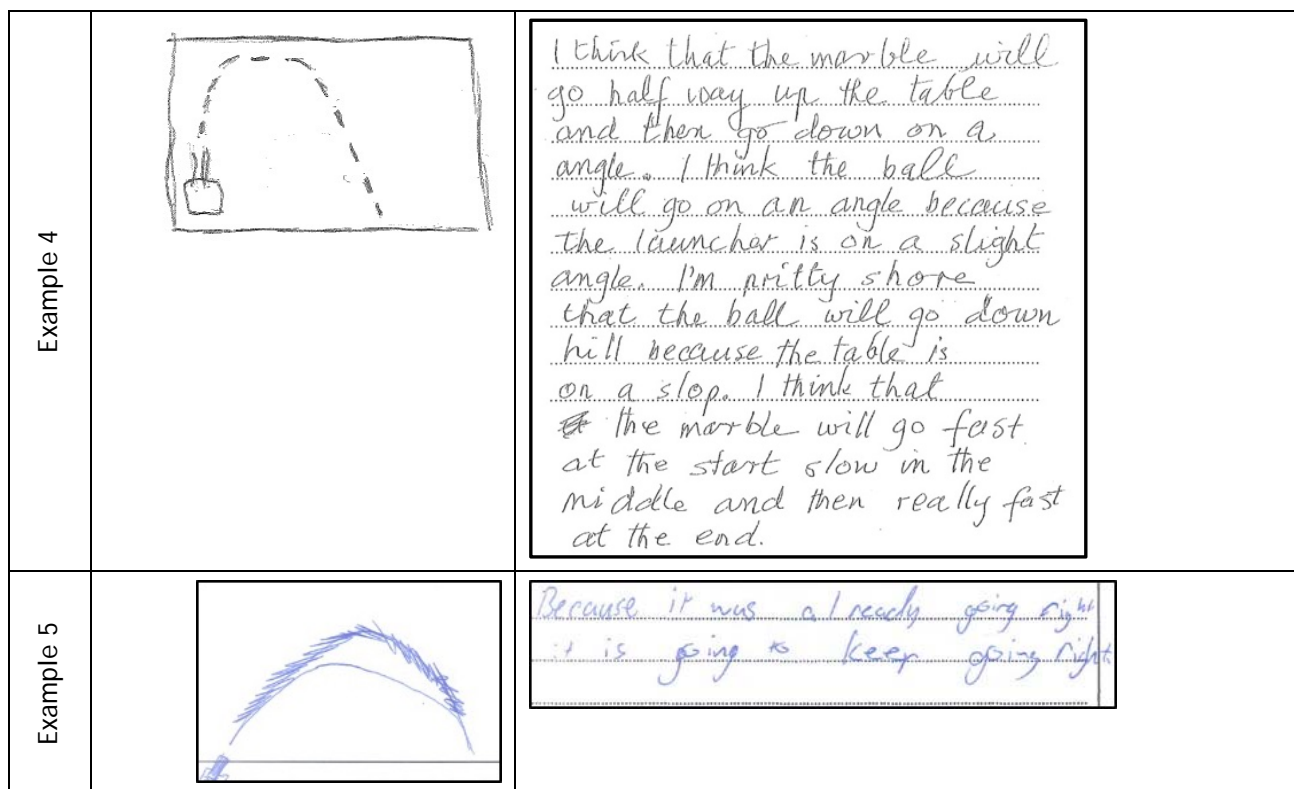 Example 4
I think that the marble will
go half way up the table
and then go down on a
angle. I think the ball
will go on an angle because
the launcher is on a slight
angle. I'm pritty shore
that the ball will go down
hill because the table is
on a slop. I think that
the marble will go fast
at the start slow in the
middle and then really fast
at the end.
Example 5
Because it was already going right
it is going to keep going right